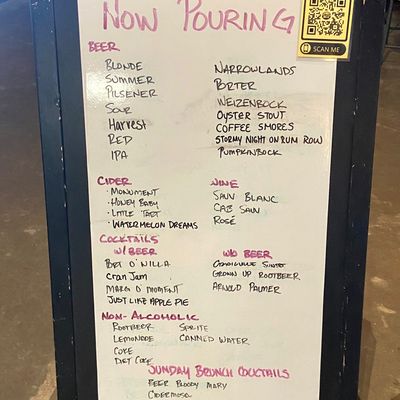 Now Pouring
SCAN ME
BEER
BLONDE
SUMMER
PILSENER
SOUR
Harvest
RED
IPA
NARROWLANDS
PORTER
WEIZENBOCK
OYSTER STOUT
COFFEE SMORES
STORMY NIGHT ON RUM ROW
PUMPKINBOCK
CIDER
· MONUMENT
· HONEY BABY
· LITTLE TART
· WATERMELON DREAMS
WINE
SAUV BLANC
CAB SAUV
ROSÉ
COCKTAILS
W/ BEER
O'NILLA
Cran Jam
MARG O' MOMENT
JUST LIKE APPLE PIE
W/O BEER
GROWN UP ROOTBEER
ARNOLD PALMER
NON-ALCOHOLIC
ROOTBEER
LEMONADE
COKE
DIET COKE
SPRITE
CANNED WATER
SUNDAY BRUNCH COCKTAILS
BEER BLOODY MARY
CIDERMOSA